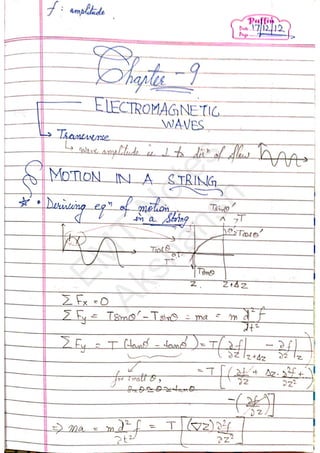 f : amplitude
Puffin
Date 17/12/12
Page
Chapter - 9
ELECTROMAGNETIC
WAVES.
↳ Transverse
↳ wave amplitude is ⊥ to dirⁿ of flow
MOTION IN A STRING
* • Deriving eqⁿ of motion
in a string.
Tsinθ' T
θ' Tcosθ'
Tcosθ θ
T
Tsinθ
z z+Δz
Σ Fx = 0
Σ Fy = Tsinθ' - Tsinθ = ma = m ∂²f/∂t²
Σ Fy = T (tanθ' - tanθ) = T( ∂f/∂z |z+Δz - ∂f/∂z |z )
for small θ,
sinθ ≃ θ ≃ tanθ
= T [ ( ∂f/∂z + Δz · ∂²f/∂z² + )
- ( ∂f/∂z ) ]
⇒ ma = m ∂²f/∂t² = T [ (∇z) ∂²f/∂z² ]